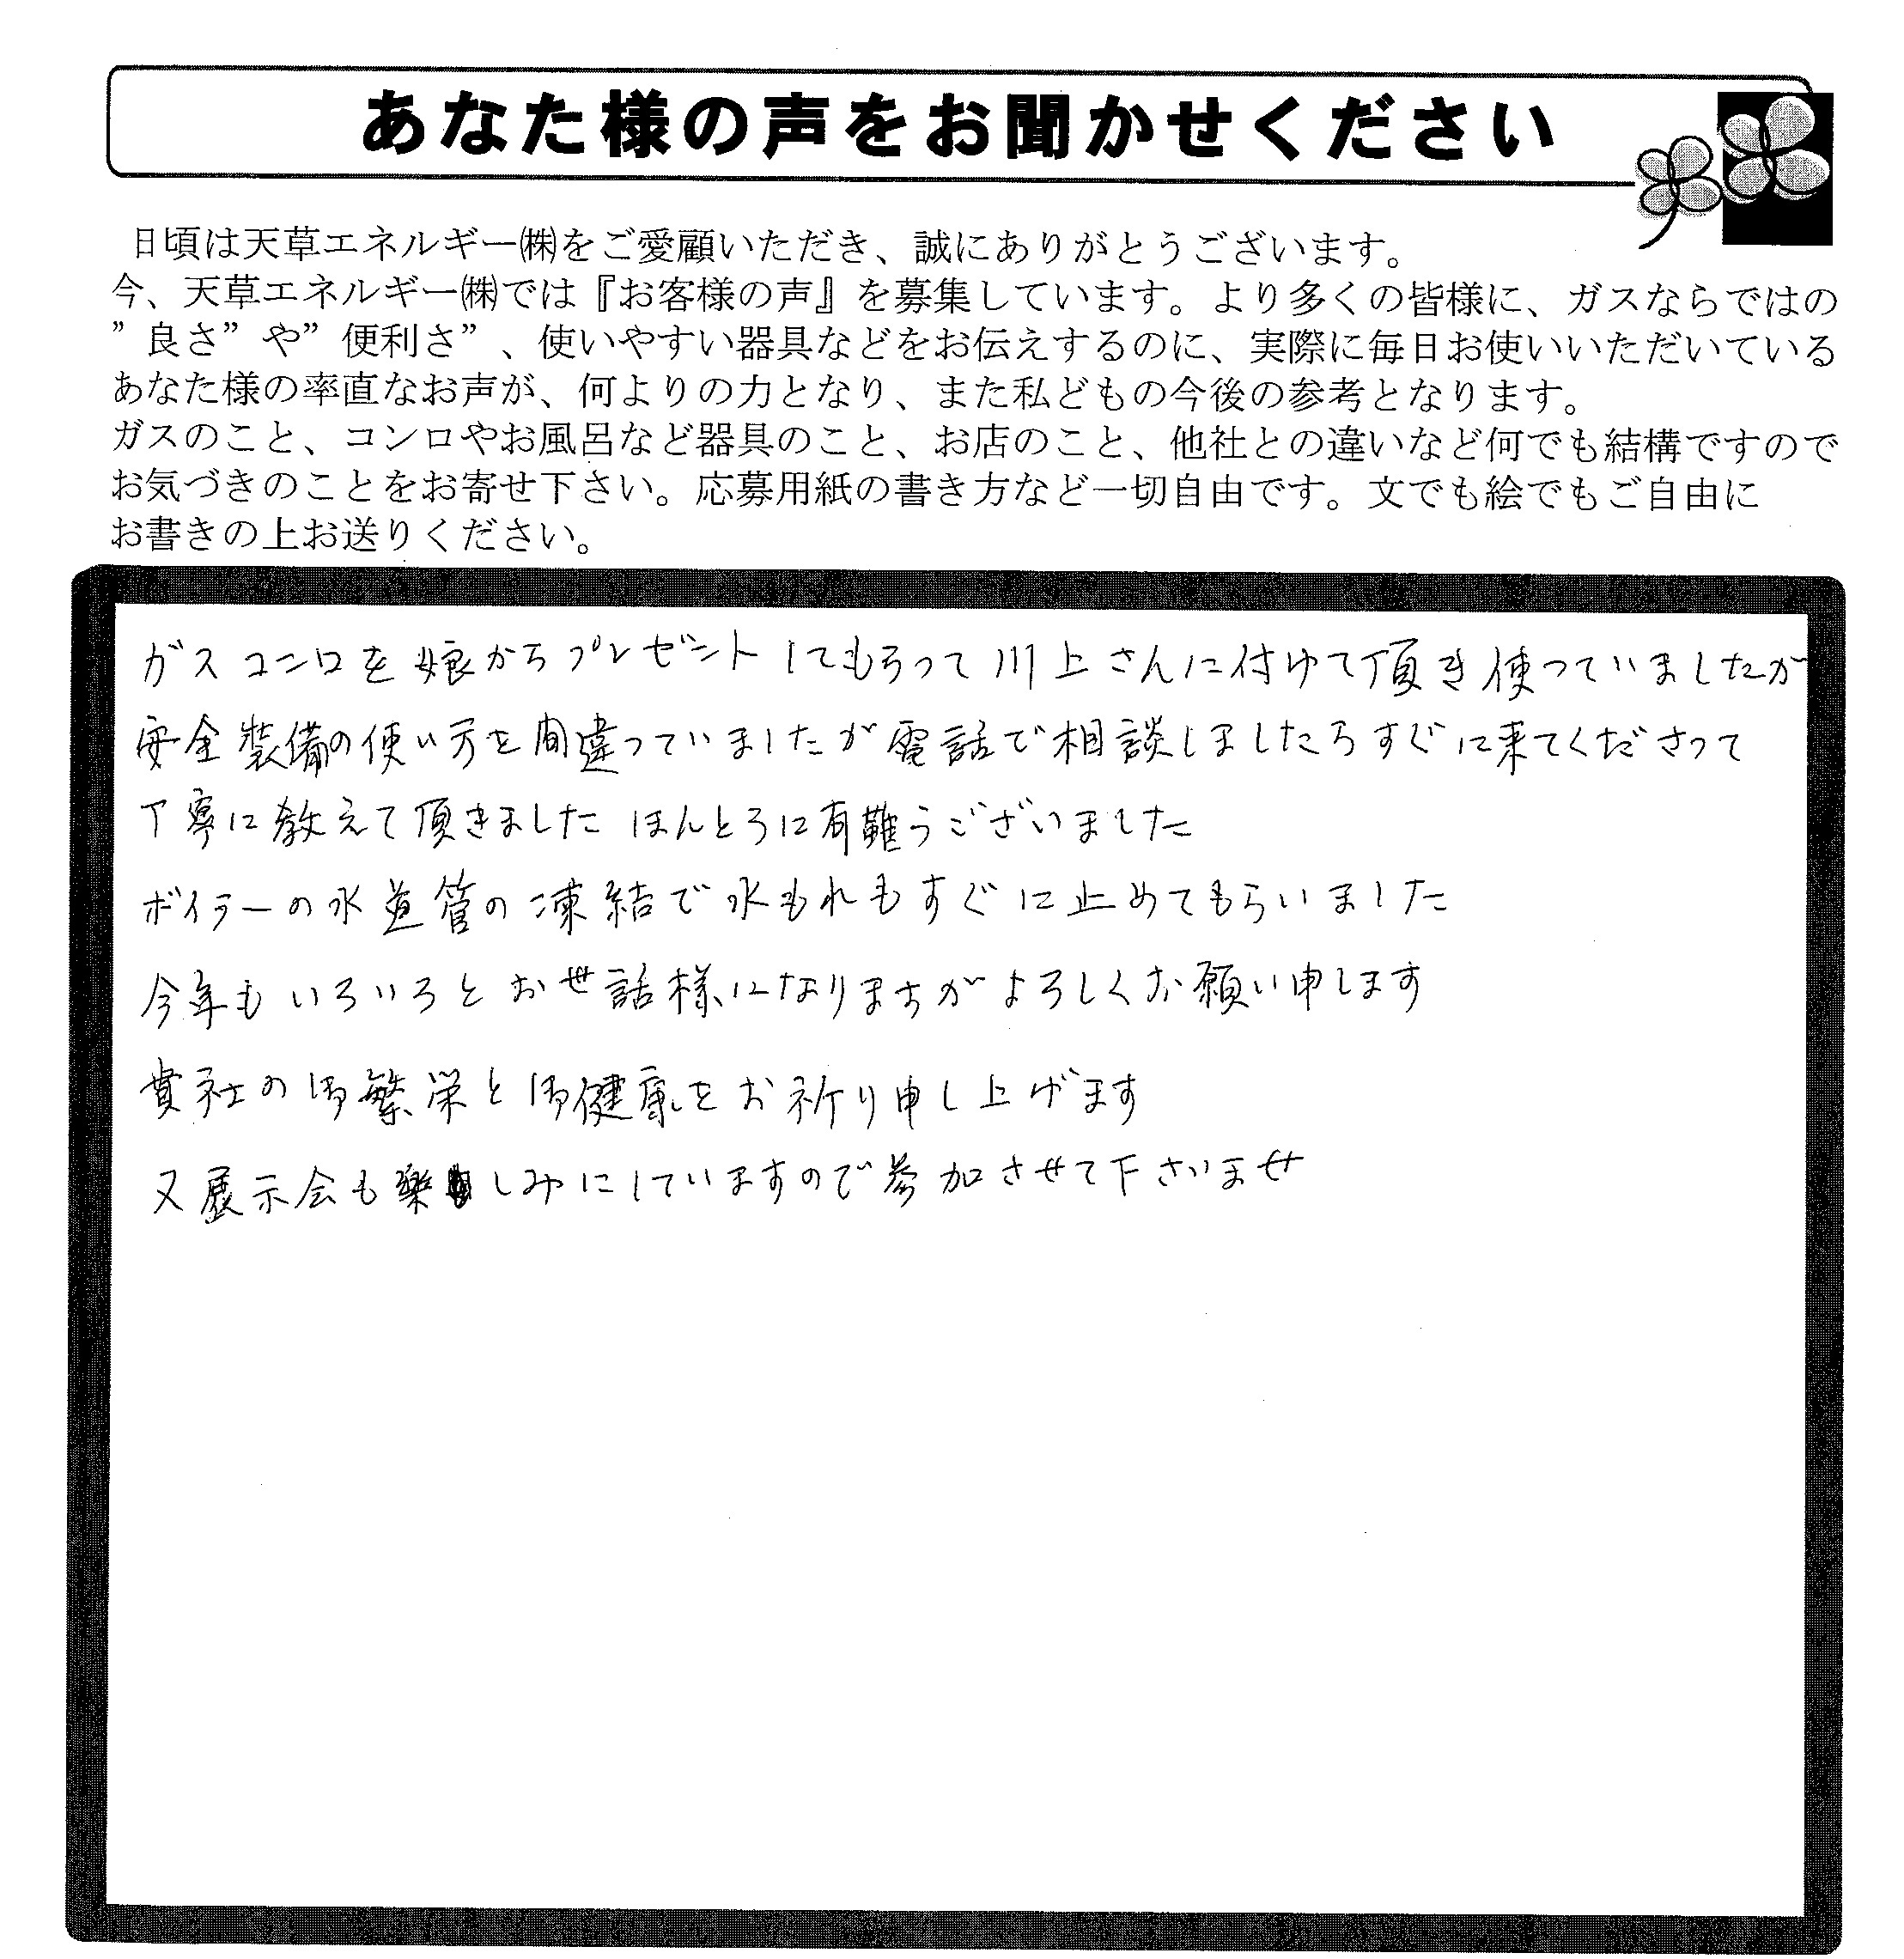 あなた様の声をお聞かせください
日頃は天草エネルギー㈱をご愛顧いただき、誠にありがとうございます。
今、天草エネルギー㈱では『お客様の声』を募集しています。より多くの皆様に、ガスならではの
”良さ”や”便利さ”、使いやすい器具などをお伝えするのに、実際に毎日お使いいただいている
あなた様の率直なお声が、何よりの力となり、また私どもの今後の参考となります。
ガスのこと、コンロやお風呂など器具のこと、お店のこと、他社との違いなど何でも結構ですので
お気づきのことをお寄せ下さい。応募用紙の書き方など一切自由です。文でも絵でもご自由に
お書きの上お送りください。
ガスコンロを娘からプレゼントしてもらって川上さんに付けて頂き使っていましたが
安全装備の使い方を間違っていましたが電話で相談しましたらすぐに来てくださって
丁寧に教えて頂きました ほんとうに有難うございました
ボイラーの水道管の凍結で水もれもすぐに止めてもらいました
今年もいろいろとお世話様になりますがよろしくお願い申します
貴社の御繁栄と御健康をお祈り申し上げます
又展示会も楽しみにしていますので参加させて下さいませ